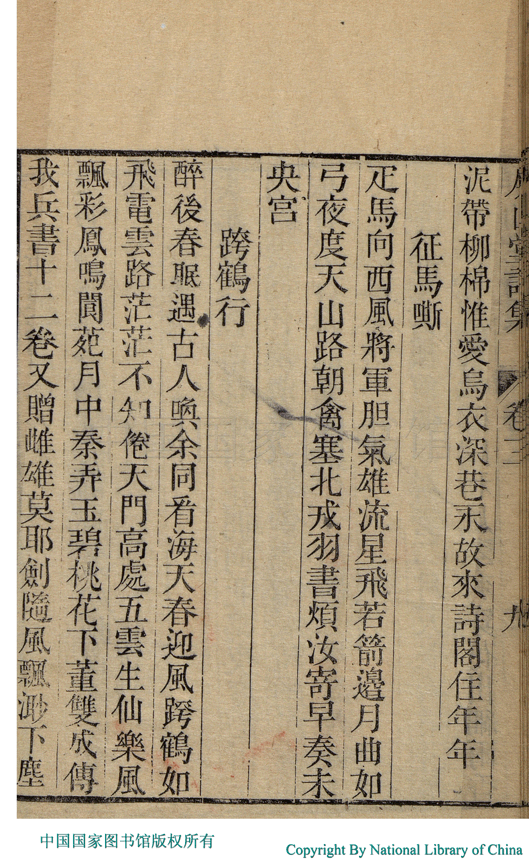 詩集 卷三 九
泥帶柳棉惟愛烏衣深巷永故來詩閣住年年
征馬嘶
疋馬向西風將軍胆氣雄流星飛若箭邊月曲如
弓夜度天山路朝禽塞北戎羽書煩汝寄早奏未
央宮
跨鶴行
醉後春眠遇古人喚余同看海天春迎風跨鶴如
飛電雲路茫茫不知倦天門高處五雲生仙樂風
飄彩鳳鳴閬苑月中秦弄玉碧桃花下董雙成傳
我兵書十二卷又贈雌雄莫耶劍隨風飄渺下塵
中国国家图书馆版权所有
Copyright By National Library of China